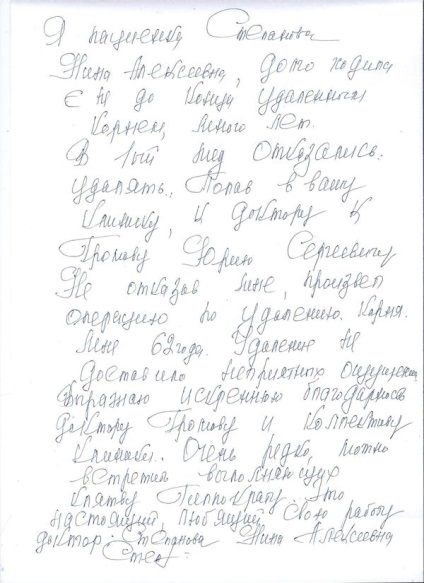 Я пациентка Степанова
Нина Алексеевна, долго ходила
с не до конца удаленным
корнем, много лет.
В 1ый мед отказались
удалять. Попав в вашу
клинику, к доктору к
Громову Юрию Сергеевичу
Не отказав мне, произвел
операцию по удалению корня.
Мне 62 года. Удаление не
доставило неприятных ощущений
Выражаю искреннюю благодарность
доктору Громову и коллективу
клиники. Очень редко, можно
встретить выполняющих
клятву Гиппократу. Это
настоящий, любящий свою работу
доктор. Степанова Нина Алексеевна